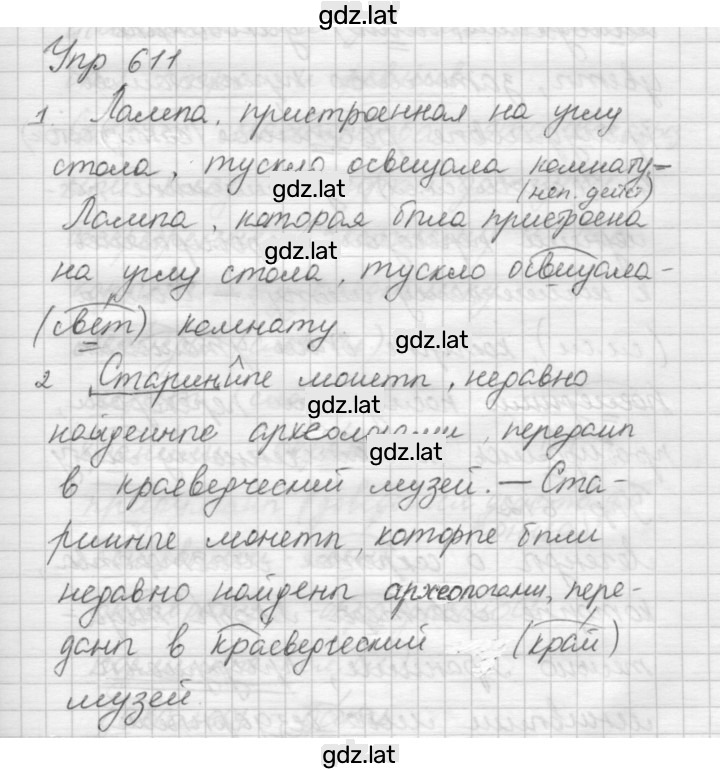 gdz.lat
Упр 611
1. Лампа, пристроенная на углу
стола, тускло освещала комнату. –
gdz.lat
(неп. дейст)
Лампа, которая была пристроена
gdz.lat
на углу стола, тускло освещала –
(свет) комнату.
gdz.lat
2 Старинные монеты, недавно
gdz.lat
найденные археологами, переданы
gdz.lat
в краеведческий музей. – Ста-
ринные монеты, которые были
недавно найдены археологами, пере-
даны в краеведческий (край)
музей.
gdz.lat